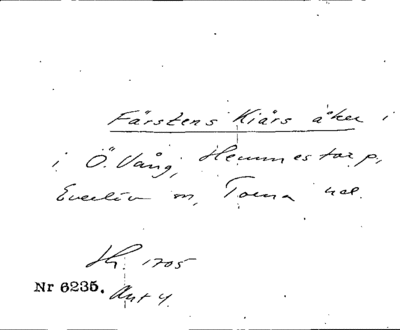 Fårstens Kiärs åker i
i Ö. Vång, Hemmestorp,
Everlöv sn, Torna hd.
Hh. 1705
Nr 6235. Ant 4.